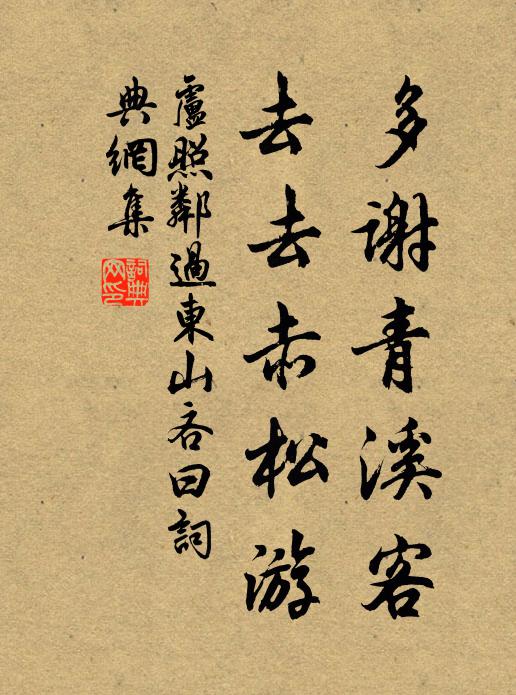 多謝青溪客
去去赤松游
盧照鄰過東山谷曰詞
典網集
詞典
网印